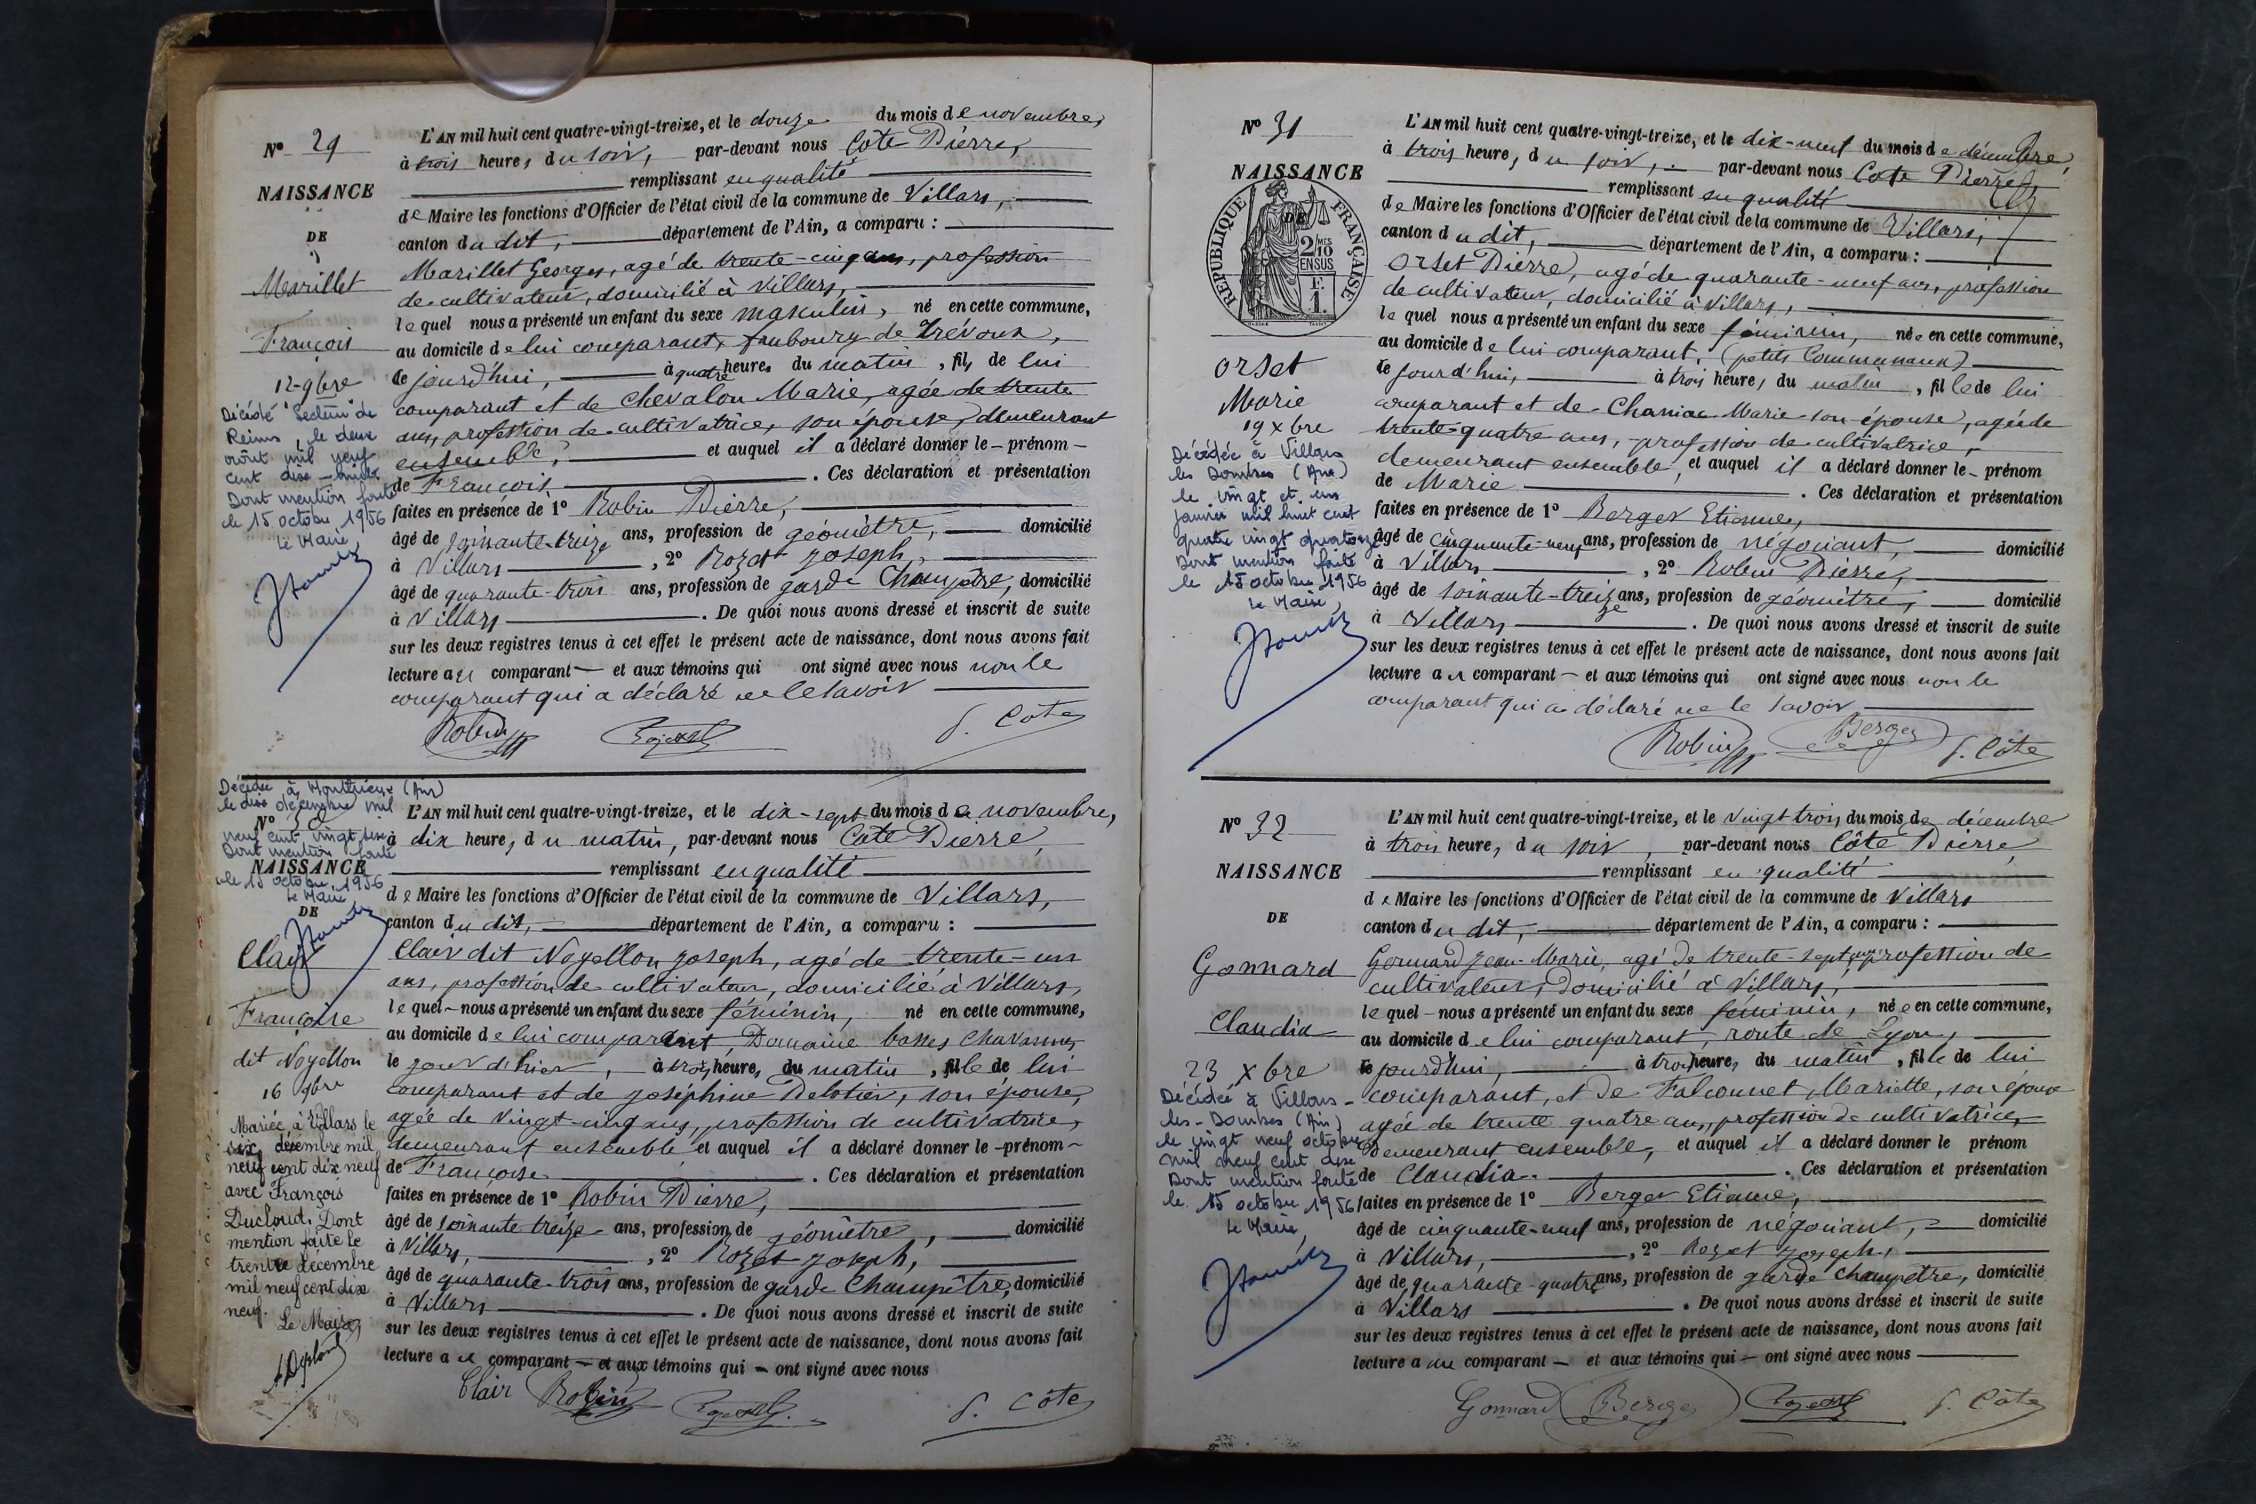 N° 29
NAISSANCE
DE
Marillet
François
12 - 9bre
Décédé "Secteur" de
Reims, le deux
août mil neuf
cent dix - huit
Dont mention faite
le 15 octobre 1956
Le Maire,
L'AN mil huit cent quatre-vingt-treize, et le douze du mois de novembre,
à trois heures du soir, par-devant nous Côte Pierre,
remplissant en qualité
de Maire les fonctions d'Officier de l'état civil de la commune de Villars,
canton dudit, département de l'Ain, a comparu :
Marillet Georges, agé de trente-cinq ans, profession
de cultivateur, domicilié à Villars,
lequel nous a présenté un enfant du sexe masculin, né en cette commune,
au domicile de lui comparant, faubourg de Trévoux,
le jourd'hui, à quatre heures du matin, fils de lui
comparant et de Chevalon Marie, agée de trente
ans, profession de cultivatrice, son épouse, demeurant
ensemble, et auquel il a déclaré donner le - prénom -
de François . Ces déclaration et présentation
faites en présence de 1° Robin Pierre,
âgé de soixante-treize ans, profession de géomètre, domicilié
à Villars , 2° Rozet Joseph,
âgé de quarante-trois ans, profession de garde Champêtre, domicilié
à Villars . De quoi nous avons dressé et inscrit de suite
sur les deux registres tenus à cet effet le présent acte de naissance, dont nous avons fait
lecture au comparant - et aux témoins qui ont signé avec nous non le
comparant qui a déclaré ne le savoir
Robin Rozet P. Côte
Décédée à Monthieux (Ain)
le dix décembre mil
N° 30
neuf cent vingt six
Dont mention faite
NAISSANCE
le 15 octobre 1956
Le Maire
DE
Clair
Françoise
dit Noyellon
16 9bre
Mariée à Villars le
six décembre mil
neuf cent dix neuf
avec François
Ducloud. Dont
mention faite le
trente décembre
mil neuf cent dix
neuf.
Le Maire,
L'AN mil huit cent quatre-vingt-treize, et le dix-sept du mois de novembre,
à dix heures du matin, par-devant nous Côte Pierre,
remplissant en qualité
de Maire les fonctions d'Officier de l'état civil de la commune de Villars,
canton dudit, département de l'Ain, a comparu :
Clair dit Noyellon Joseph, agé de trente-un
ans, profession de cultivateur, domicilié à Villars,
lequel - nous a présenté un enfant du sexe féminin, né en cette commune,
au domicile de lui comparant, Domaine basses Chavannes
le jour d'hier, à trois heures du matin, fille de lui
comparant et de Joséphine Delatier, son épouse,
agée de vingt-cinq ans, profession de cultivatrice,
demeurant ensemble et auquel il a déclaré donner le - prénom -
de Françoise . Ces déclaration et présentation
faites en présence de 1° Robin Pierre,
âgé de soixante treize ans, profession de géomètre, domicilié
à Villars, , 2° Rozet Joseph,
âgé de quarante-trois ans, profession de garde Champêtre, domicilié
à Villars . De quoi nous avons dressé et inscrit de suite
sur les deux registres tenus à cet effet le présent acte de naissance, dont nous avons fait
lecture au comparant - et aux témoins qui - ont signé avec nous
Clair Robin Rozet P. Côte
N° 31
NAISSANCE
DE
RÉPUBLIQUE FRANÇAISE
2 MES
10
EN SUS
F.
1.
Orset
Marie
19 xbre
Décédée à Villars
les Dombes (Ain)
le vingt et un
janvier mil huit cent
quatre vingt quatorze
Dont mention faite
le 15 octobre 1956
Le Maire,
L'AN mil huit cent quatre-vingt-treize, et le dix-neuf du mois de décembre,
à trois heures, du soir, par-devant nous Côte Pierre,
remplissant en qualité
de Maire les fonctions d'Officier de l'état civil de la commune de Villars,
canton dudit, département de l'Ain, a comparu :
Orset Pierre, agé de quarante-neuf ans, profession
de cultivateur, domicilié à Villars,
lequel nous a présenté un enfant du sexe féminin, née en cette commune,
au domicile de lui comparant, (petits Communaux)
le jourd'hui, à trois heures, du matin, fille de lui
comparant et de Chaniac Marie son épouse, agée de
trente-quatre ans, profession de cultivatrice,
demeurant ensemble, et auquel il a déclaré donner le - prénom
de Marie . Ces déclaration et présentation
faites en présence de 1° Berger Etienne,
âgé de cinquante-neuf ans, profession de négociant, domicilié
à Villars , 2° Robin Pierre,
âgé de soixante-treize ans, profession de géomètre, domicilié
à Villars . De quoi nous avons dressé et inscrit de suite
sur les deux registres tenus à cet effet le présent acte de naissance, dont nous avons fait
lecture au comparant - et aux témoins qui ont signé avec nous non le
comparant qui a déclaré ne le savoir
Robin Berger P. Côte
N° 32
NAISSANCE
DE
Gonnard
Claudia
23 xbre
Décédée à Villars-
les-Dombes (Ain)
le vingt neuf octobre
mil neuf cent dix
Dont mention faite
le 15 octobre 1956
Le Maire,
L'AN mil huit cent quatre-vingt-treize, et le vingt trois du mois de décembre
à trois heures, du soir, par-devant nous Côte Pierre,
remplissant en qualité
de Maire les fonctions d'Officier de l'état civil de la commune de Villars
canton dudit, département de l'Ain, a comparu :
Gonnard Jean-Marie, agé de trente-sept ans, profession de
cultivateur, domicilié à Villars,
lequel - nous a présenté un enfant du sexe féminin, née en cette commune,
au domicile de lui comparant, route de Lyon,
le jourd'hui, à trois heures, du matin, fille de lui
comparant, et de Falconnet Mariette, son épouse
agée de trente quatre ans, profession de cultivatrice,
Demeurant ensemble, et auquel il a déclaré donner le prénom
de Claudia. . Ces déclaration et présentation
faites en présence de 1° Berger Etienne,
âgé de cinquante-neuf ans, profession de négociant, domicilié
à Villars, , 2° Rozet Joseph,
âgé de quarante-quatre ans, profession de garde champêtre, domicilié
à Villars . De quoi nous avons dressé et inscrit de suite
sur les deux registres tenus à cet effet le présent acte de naissance, dont nous avons fait
lecture au comparant - et aux témoins qui - ont signé avec nous
Gonnard Berger Rozet P. Côte